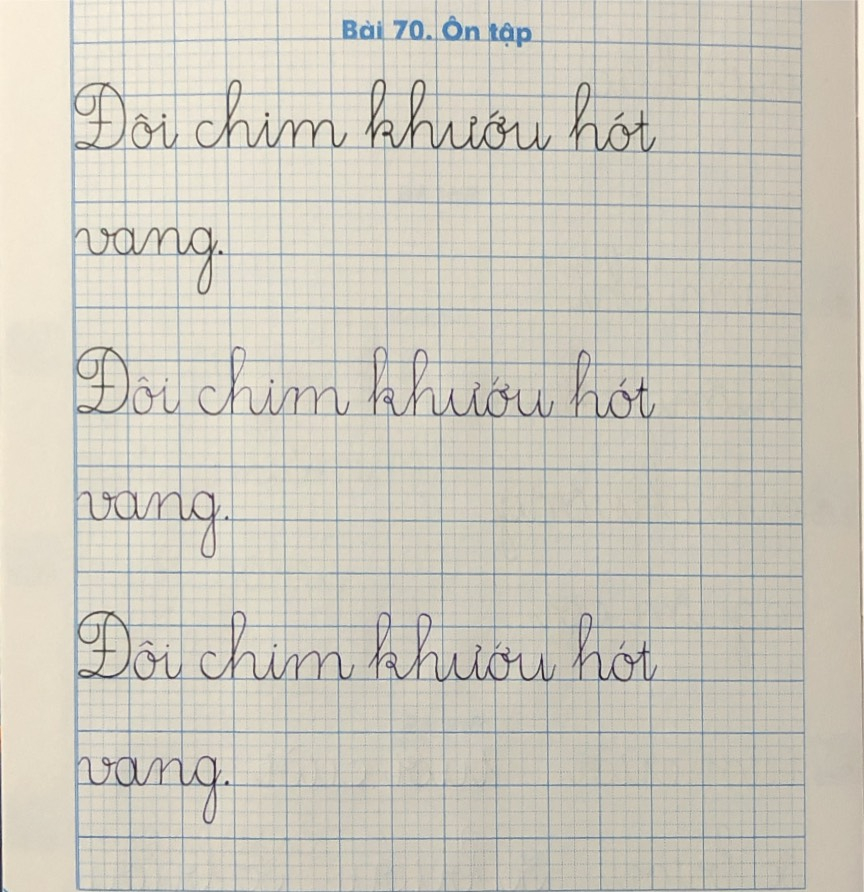 Bài 70. Ôn tập
Đôi chim khướu hót
vang.
Đôi chim khướu hót
vang.
Đôi chim khướu hót
vang.